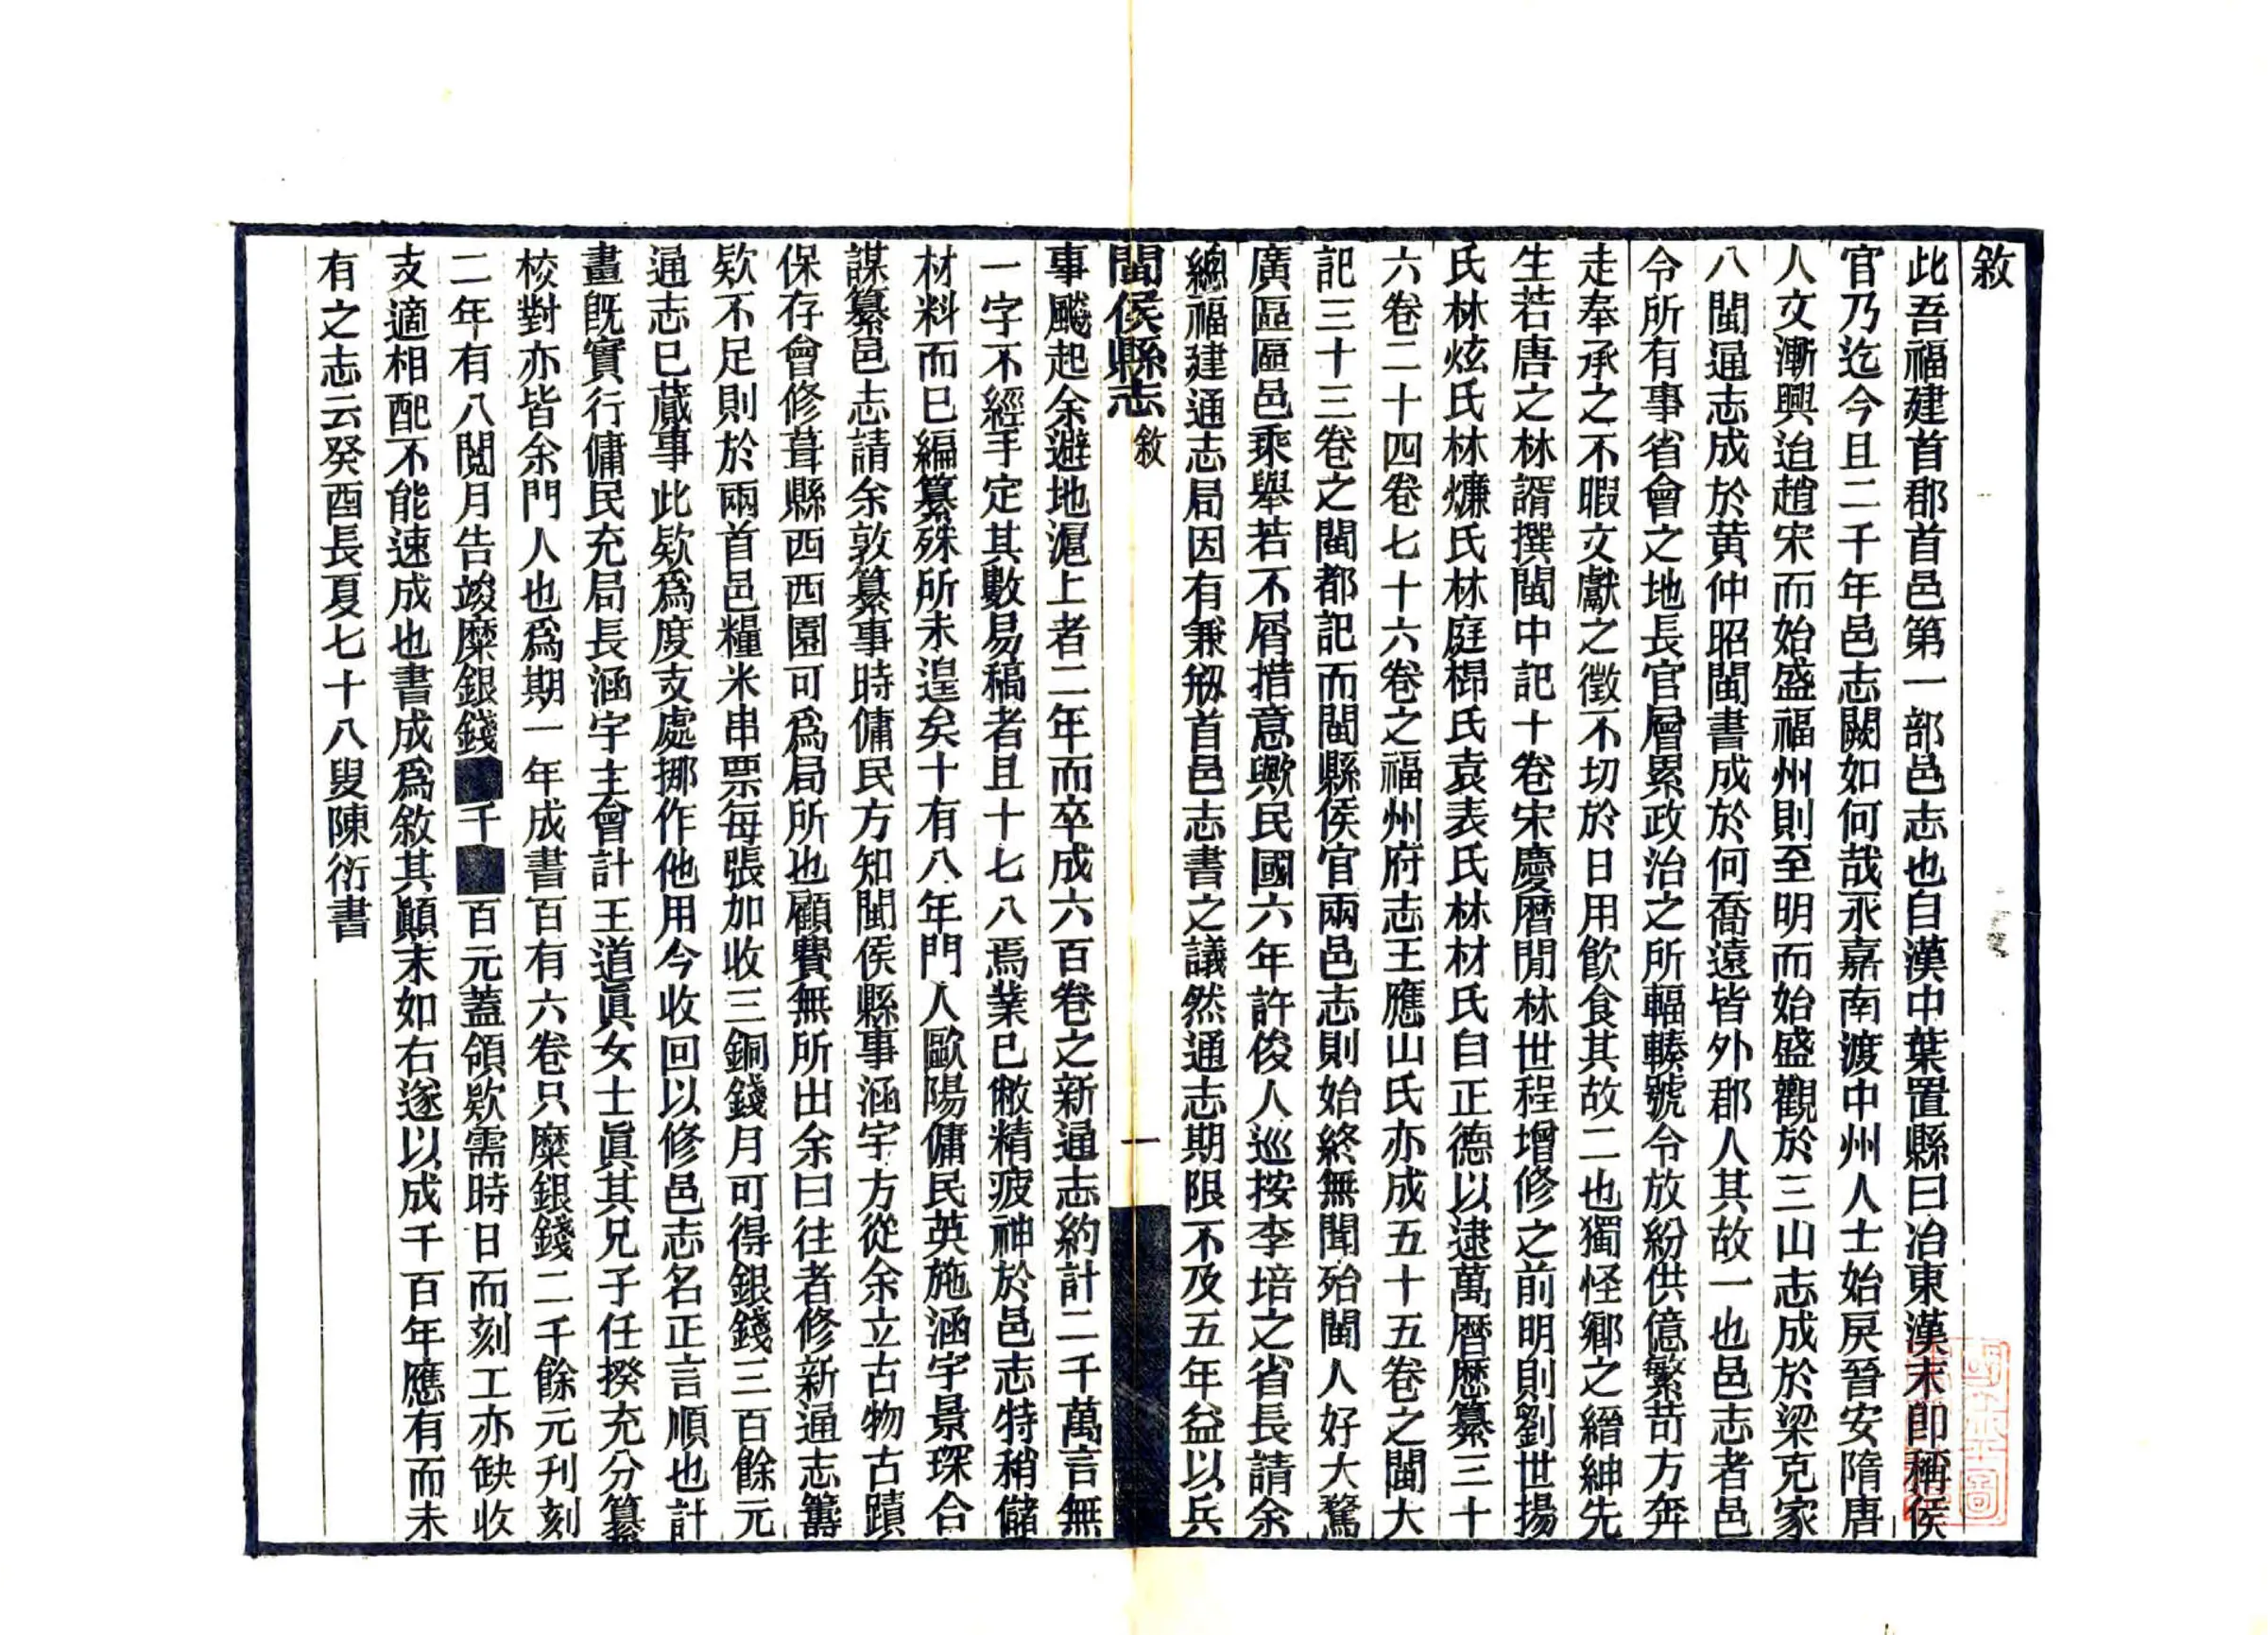 敘
此吾福建首郡首邑第一部邑志也自漢中葉置縣曰冶東漢末卽稱侯
官乃迄今且二千年邑志闕如何哉永嘉南渡中州人士始戾晉安隋唐
人文漸興迨趙宋而始盛福州則至明而始盛觀於三山志成於梁克家
八閩通志成於黄仲昭閩書成於何喬遠皆外郡人其故一也邑志者邑
令所有事省會之地長官層累政治之所輻輳號令放紛供億繁苛方奔
走奉承之不暇文獻之徵不切於日用飮食其故二也獨怪鄉之縉紳先
生若唐之林諝撰閩中記十卷宋慶曆閒林世程增修之前明則劉世揚
氏林炫氏林㷿氏林庭㭿氏袁表氏林材氏自正德以逮萬曆歷纂三十
六卷二十四卷七十六卷之福州府志王應山氏亦成五十五卷之閩大
記三十三卷之閩都記而閩縣侯官兩邑志則始終無聞殆閩人好大騖
廣區區邑乘舉若不屑措意歟民國六年許俊人巡按李培之省長請余
總福建通志局因有兼剏首邑志書之議然通志期限不及五年益以兵
閩侯縣志 敘 一
事飈起余避地滬上者二年而卒成六百卷之新通志約計二千萬言無
一字不經手定其數易稿者且十七八焉業已敝精疲神於邑志特稍儲
材料而已編纂殊所未遑矣十有八年門人歐陽傭民英施涵宇景琛合
謀纂邑志請余敦纂事時傭民方知閩侯縣事涵宇方從余立古物古蹟
保存會修葺縣西西園可爲局所也顧費無所出余曰往者修新通志籌
欵不足則於兩首邑糧米串票每張加收三銅錢月可得銀錢三百餘元
通志已蕆事此欵爲度支處挪作他用今收回以修邑志名正言順也計
畫旣實行傭民充局長涵宇主會計王道眞女士眞其兄子任揆充分纂
校對亦皆余門人也爲期一年成書百有六卷只糜銀錢二千餘元刋刻
二年有八閱月告竣糜銀錢■千■百元蓋領欵需時日而刻工亦缺收
支適相配不能速成也書成爲敘其顚末如右遂以成千百年應有而未
有之志云癸酉長夏七十八叟陳衍書